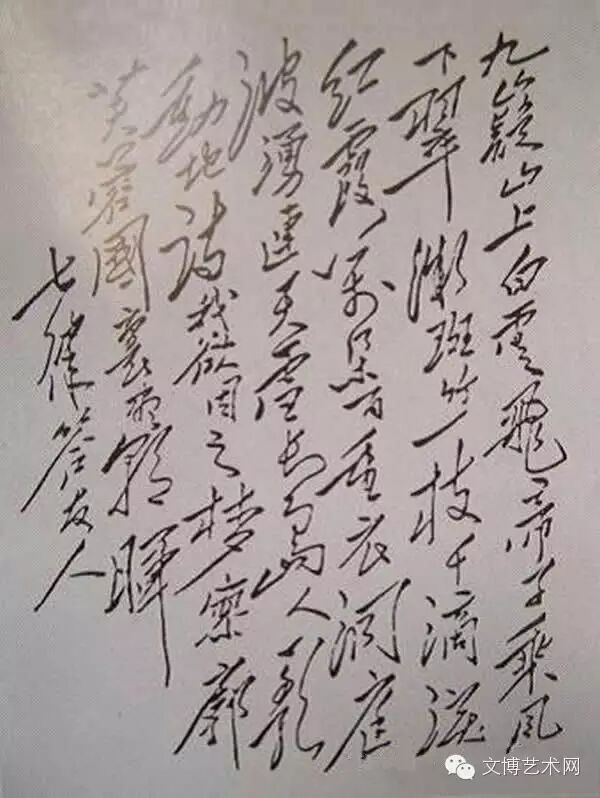 九嶷山上白雲飛帝子乘风
下翠微斑竹一枝千滴淚
红霞万朵百重衣洞庭
波湧連天雪長島人歌
動地诗我欲因之梦寥廓
芙蓉國裏盡朝暉
七律答友人
文博艺术网